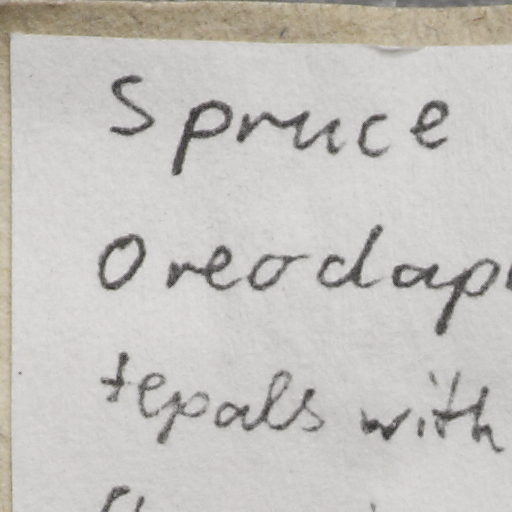 Spruce
Oreodap
tepals with